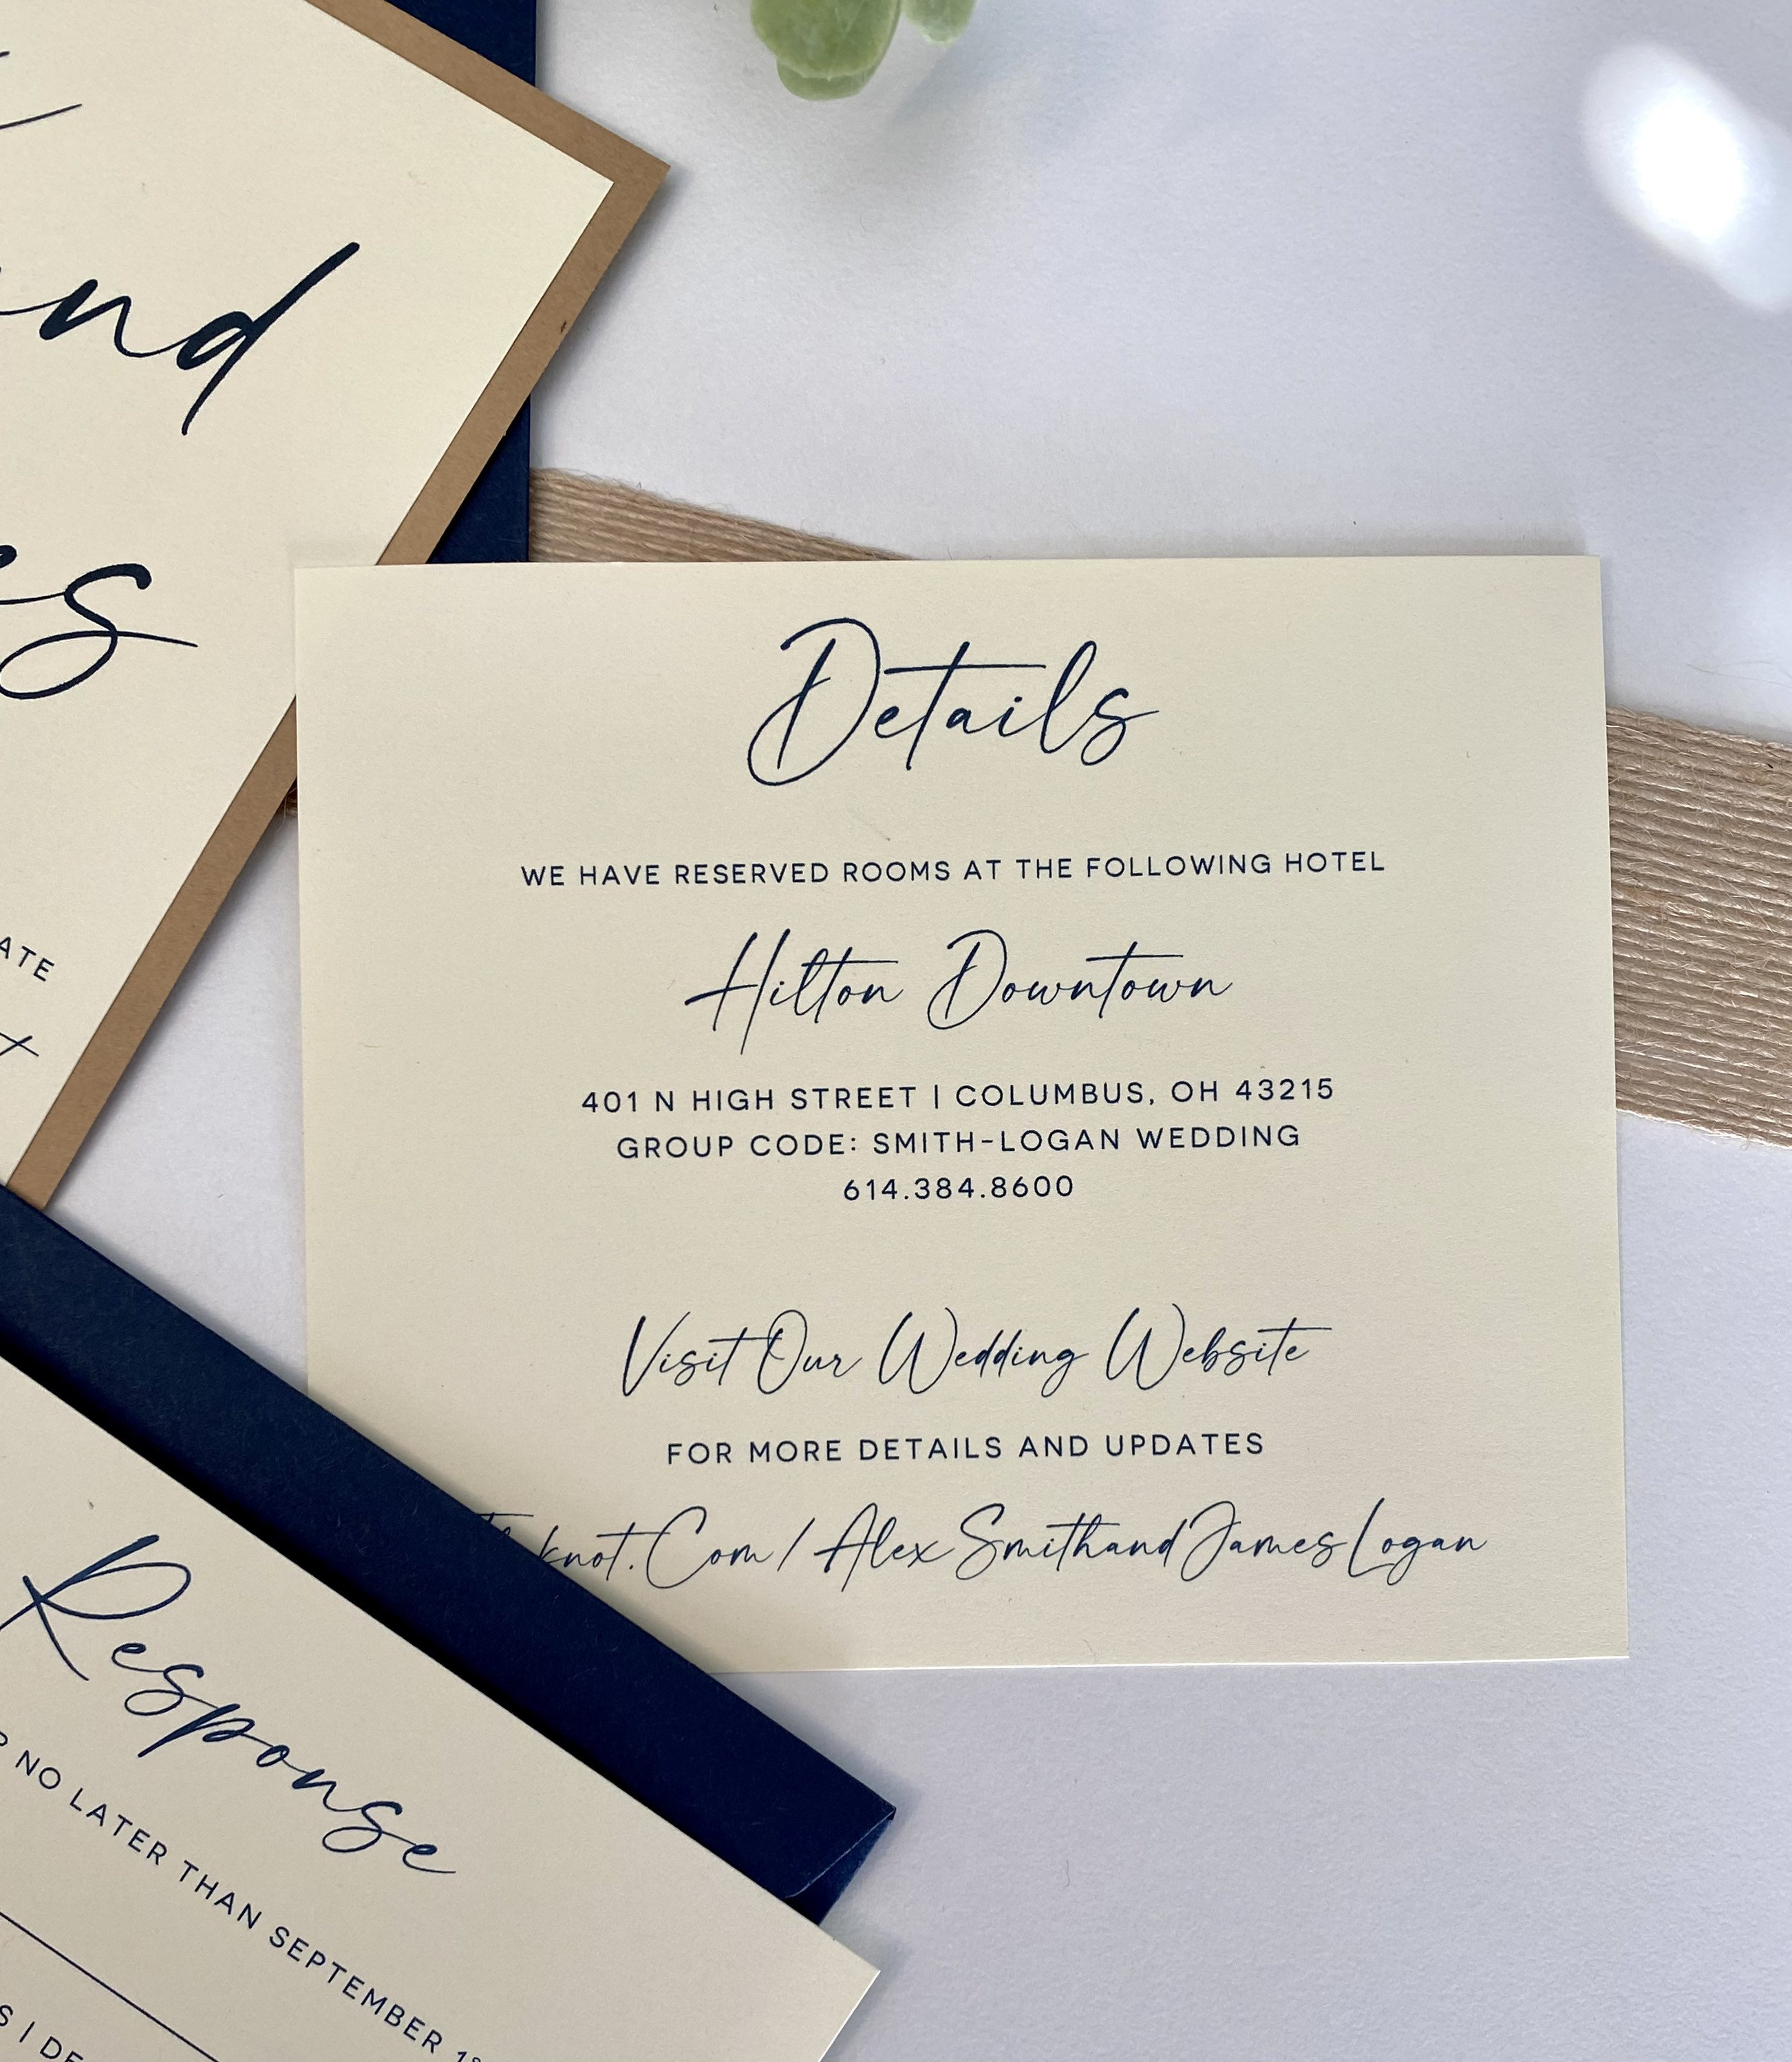 Details
WE HAVE RESERVED ROOMS AT THE FOLLOWING HOTEL
Hilton Downtown
401 N HIGH STREET | COLUMBUS, OH 43215
GROUP CODE: SMITH-LOGAN WEDDING
614.384.8600
Visit Our Wedding Website
FOR MORE DETAILS AND UPDATES
knot.Com/AlexSmithandJamesLogan
Response
NO LATER THAN SEPTEMBER